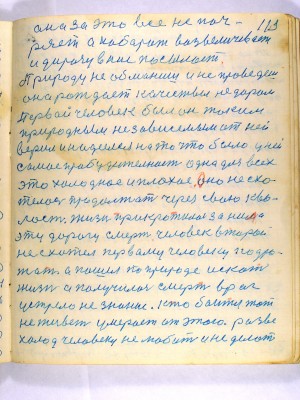 113
она за это все не пач-
ряет а наборат возвеличивает
и дарагу в нис посилает.
Природу не обманиш и не проведеш
она раждает качиствы недаром
Первай человек был он таким
природным независемым от ней
верил и надеялся на то что было у ней
самае прабуджениат одна для всех
это холодное и плохое, Оно не схо-
телось продолжат через сваю
жизн прикротилос за
эту дарогу смерт. человек второй
не схотел первому человеку подро-
жат а пошол по природе искат
жизн а получилас смерт враг
устрело не знание. кто боится тот
не живет умерает от этого. разве
холод человеку не любит и не делает